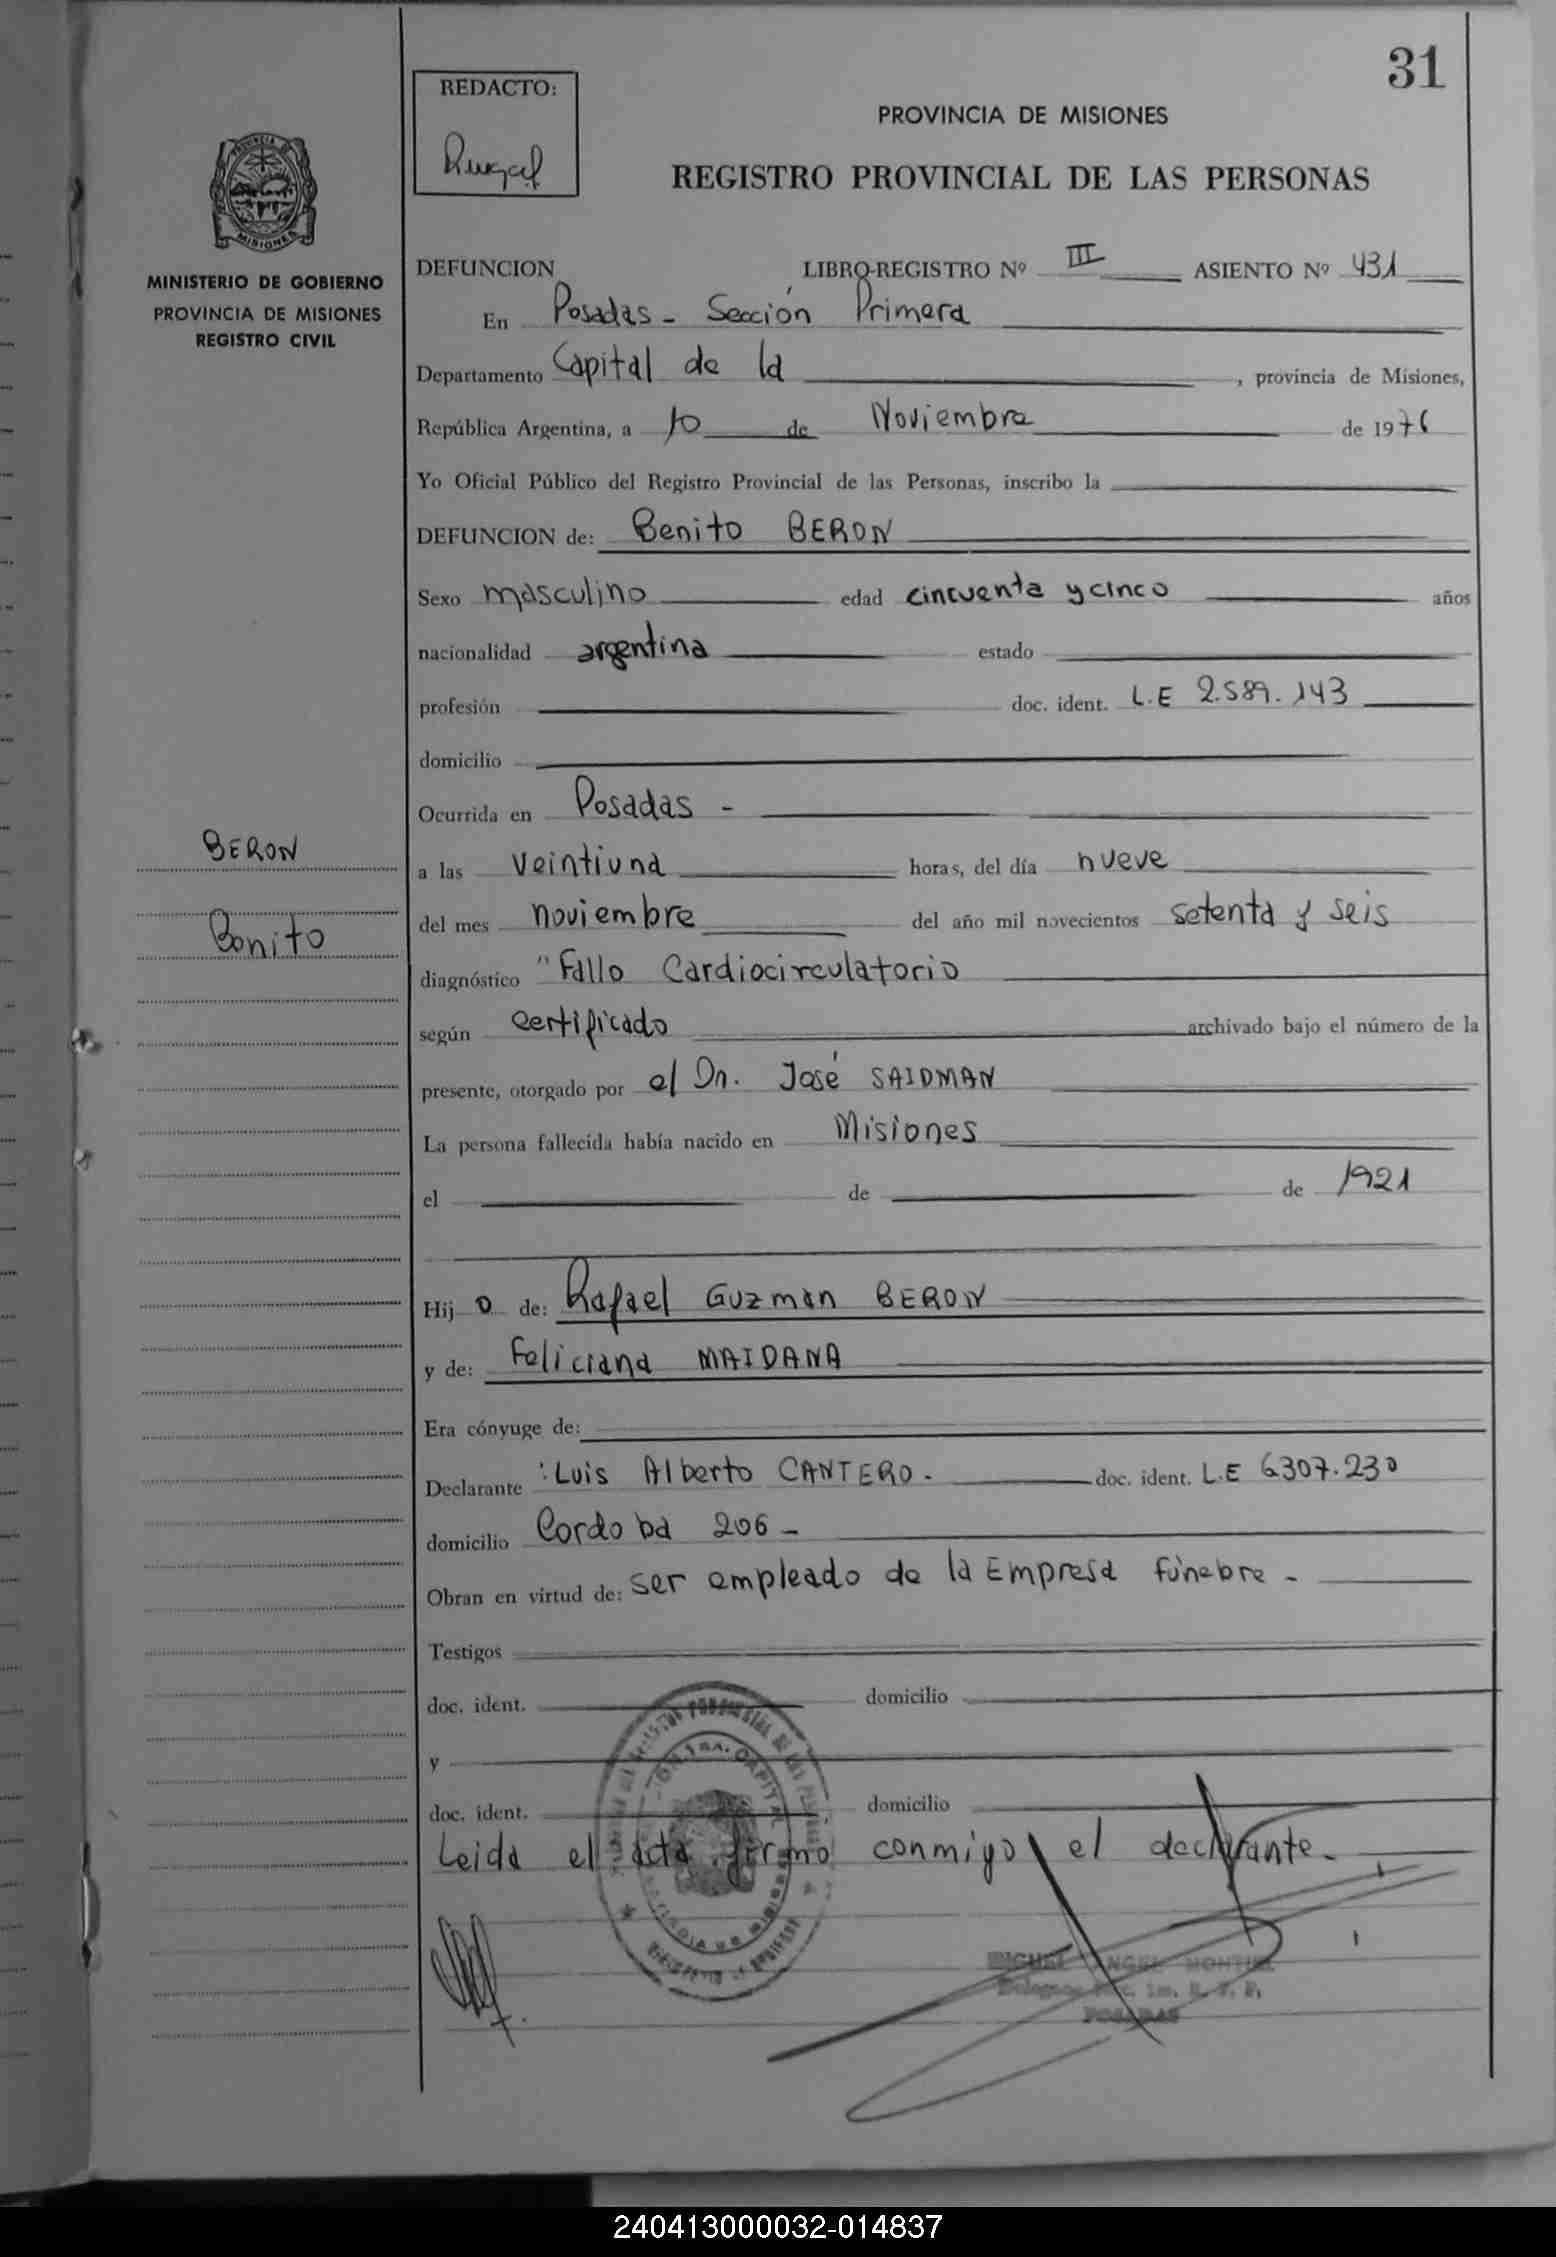 31
REDACTO:
PROVINCIA DE MISIONES
REGISTRO PROVINCIAL DE LAS PERSONAS
MISIONES
MINISTERIO DE GOBIERNO
PROVINCIA DE MISIONES
REGISTRO CIVIL
DEFUNCION LIBRO-REGISTRO Nº III ASIENTO Nº 431
En Posadas - Sección Primera
Departamento Capital de la , provincia de Misiones,
República Argentina, a 10 de Noviembre de 1976
Yo Oficial Público del Registro Provincial de las Personas, inscribo la
DEFUNCION de: Benito BERON
Sexo masculino edad cincuenta y cinco años
nacionalidad argentina estado
profesión doc. ident. L.E 2.589.143
domicilio
Ocurrida en Posadas -
BERON
a las veintiuna horas, del día nueve
Benito
del mes noviembre del año mil novecientos setenta y seis
diagnóstico "Fallo Cardiocirculatorio
según certificado archivado bajo el número de la
presente, otorgado por el Dr. José SAIDMAN
La persona fallecida había nacido en Misiones
el de de 1921
Hij o de: Rafael Guzman BERON
y de: Feliciana MAIDANA
Era cónyuge de:
Declarante : Luis Alberto CANTERO. doc. ident. L.E 6307.230
domicilio Cordoba 206 -
Obran en virtud de: ser empleado de la Empresa fúnebre -
Testigos
doc. ident. domicilio
y
doc. ident. domicilio
Leida el acta firmo conmigo el declarante.
MIGUEL ANGEL MONTIEL
POSADAS
240413000032-014837